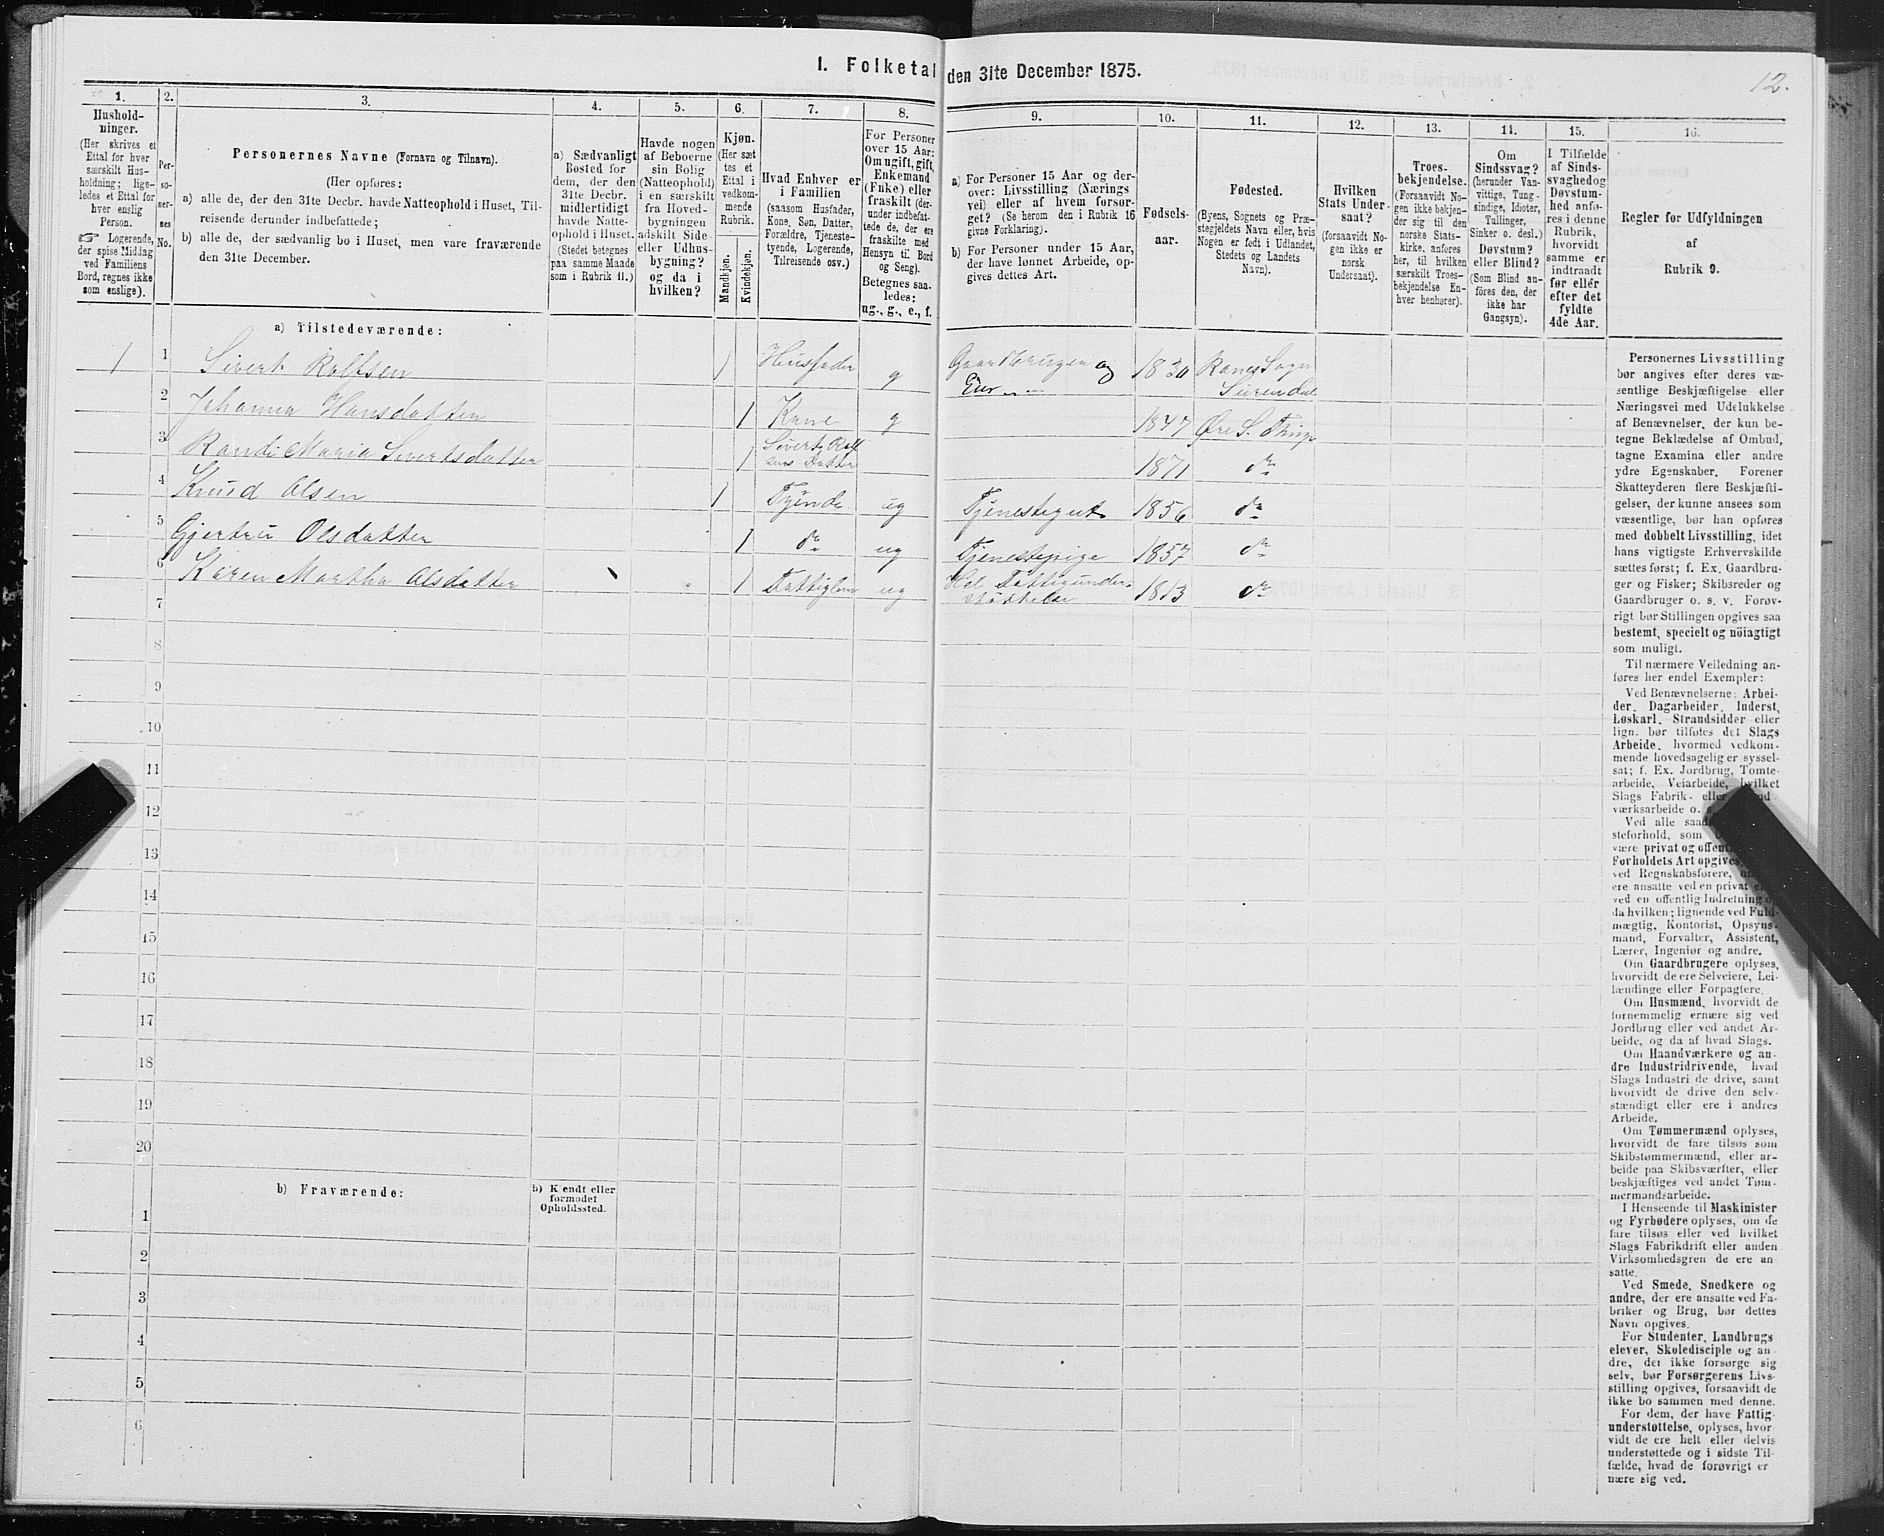 I. Folketal den 31te December 1875.
12.
1.
Hushold-
ninger.
(Her skrives et
Ettal for hver
særskilt Hus-
holdning; lige-
ledes et Ettal for
hver enslig
Person.
☞ Logerende,
der spise Middag
ved Familiens
Bord, regnes ikke
som enslige).
2.
Per-
so-
ner-
nes
No.
3.
Personernes Navne (Fornavn og Tilnavn).
(Her opføres:
a) alle de, der den 31te Decbr. havde Natteophold i Huset, Til-
reisende derunder indbefattede;
b) alle de, der sædvanlig bo i Huset, men vare fraværende
den 31te December.
4.
a) Sædvanligt
Bosted for
dem, der den
31te Decbr.
midlertidigt
havde Natte-
ophold i Huset.
(Stedet betegnes
paa samme Maade
som i Rubrik 11.)
5.
Havde nogen
af Beboerne
sin Bolig
(Natteophold)
i en særskilt
fra Hoved-
bygningen
adskilt Side-
eller Udhus-
bygning?
og da i
hvilken?
6.
Kjøn.
(Her sæt
tes et
Ettal i
vedkom-
mende
Rubrik.
Mandkjøn.
Kvindekjøn.
7.
Hvad Enhver er
i Familien
(saasom Husfader,
Kone, Søn, Datter,
Forældre, Tjeneste-
tyende, Logerende,
Tilreisende osv.)
8.
For Personer
over 15 Aar:
Om ugift, gift,
Enkemand
(Enke) eller
fraskilt (der-
under indbefat-
tede de, der ere
fraskilte med
Hensyn til Bord
og Seng).
Betegnes saa-
ledes:
ug., g., e., f.
9.
a) For Personer 15 Aar og der-
over: Livsstilling (Nærings
vei) eller af hvem forsør-
get? (Se herom den i Rubrik 16
givne Forklaring).
b) For Personer under 15 Aar,
der have lønnet Arbeide, op-
gives dettes Art.
10.
Fødsels-
aar.
11.
Fødested.
(Byens, Sognets og Præ-
stegjeldets Navn eller, hvis
Nogen er født i Udlandet,
Stedets og Landets
Navn).
12.
Hvilken
Stats Under
saat?
(forsaavidt No-
gen ikke er
norsk
Undersaat).
13.
Troes-
bekjendelse.
(Forsaavidt No-
gen ikke bekjen-
der sig til den
norske Stats-
kirke, anføres
her, til hvilken
særskilt Troes-
bekjendelse En-
hver henhører).
14.
Om
Sindssvag?
(herunder Van-
vittige, Tung-
sindige, Idioter,
Tullinger,
Sinker o. desl.)
Døvstum?
eller Blind?
(Som Blind an-
føres den, der
ikke har
Gangsyn).
15.
I Tilfælde
af Sinds-
svaghed og
Døvstum-
hed anfø-
res i denne
Rubrik,
hvorvidt
samme er
indtraadt
før eller
efter det
fyldte
4de Aar.
16.
Regler for Udfyldningen
af
Rubrik 9.
a) Tilstedeværende:
1 1 Sivert Rolfsen 1 Husfader g Gaardbruger og Eier 1830 Ranes Sogn Surendal
2 Johanna Hansdatter 1 Kone g 1847 Øre S. Thing
3 Randi Maria Sivertsdatter 1 Sivert Rolfsens Datter 1871 do
4 Knud Olsen 1 Tyende ug Tjenestegut 1856 do
5 Gjertru Olsdatter 1 do ug Tjenestepige 1857 do
6 Karen Martha Olsdatter 1 Fattiglem ug Hel Fattigunderstøttelse 1813 do
7
8
9
10
11
12
13
14
15
16
17
18
19
20
b) Fraværende:
b) Kjendt eller
formodet
Opholdssted.
1
2
3
4
5
6
Personernes Livsstilling
bør angives efter deres væ-
sentlige Beskjæftigelse eller
Næringsvei med Udelukkelse
af Benævnelser, der kun be-
tegne Beklædelse af Ombud,
tagne Examina eller andre
ydre Egenskaber. Forener
Skatteyderen flere Beskjæfti-
gelser, der kunne ansees som
væsentlige, bør han opføres
med dobbelt Livsstilling, idet
hans vigtigste Erhvervskilde
sættes først; f. Ex. Gaardbru-
ger og Fisker; Skibsreder og
Gaardbruger o. s. v. Forøv-
rigt bør Stillingen opgives saa
bestemt, specielt og nöiagtigt
som muligt.
Til nærmere Veiledning an-
føres her endel Exempler:
Ved Benævnelserne: Arbei-
der, Dagarbeider, Inderst,
Løskarl, Strandsidder eller
lign. bør tilføtes det Slags
Arbeide, hvormed vedkom-
mende hovedsagelig er syssel-
sat; f. Ex. Jordbrug, Tomte-
arbeide, Veiarbeide, hvilket
Slags Fabrik- eller
værksarbeide o. s.
Ved alle
steforhold, som
være privat og
Forholdets Art opgives,
ved Regnskabsførere,
ere ansatte ved en privat
ved en offentlig Indretning
da hvilken; lignende ved Fuld-
mægtig, Kontorist, Opsyns-
mand, Forvalter, Assistent,
Lærer, Ingeniør og andre.
Om Gaardbrugere oplyses,
hvorvidt de ere Selveiere, Lei-
lændinge eller Forpagtere.
Om Husmænd, hvorvidt de
fornemmelig ernære sig ved
Jordbrug eller ved andet Ar-
beide, og da af hvad Slags.
Om Haandværkere og an-
dre Industridrivende, hvad
Slags Industri de drive, samt
hvorvidt de drive den selv-
stændigt eller ere i andres
Arbeide.
Om Tømmermænd oplyses,
hvorvidt de fare tilsøs som
Skibstømmermænd, eller ar-
beide paa Skibsværfter, eller
beskjæftiges ved andet Tøm-
mermandsarbeide.
I Henseende til Maskinister
og Fyrbødere oplyses, om de
fare tilsøs eller ved hvilket
Slags Fabrikdrift eller anden
Virksomhedsgren de ere an-
satte.
Ved Smede, Snedkere og
andre, der ere ansatte ved Fa-
briker og Brug, bør dettes
Navn opgives.
For Studenter, Landbrugs
elever, Skoledisciple og an
dre, der ikke forsørge sig
selv, bør Forsørgerens Livs-
stilling opgives, forsaavidt de
ikke bo sammen med denne.
For dem, der have Fattig-
understøttelse, oplyses, hvor
vidt de ere helt eller delvis
understøttede og i sidste Til-
fælde, hvad de forøvrigt er
nære sig ved.